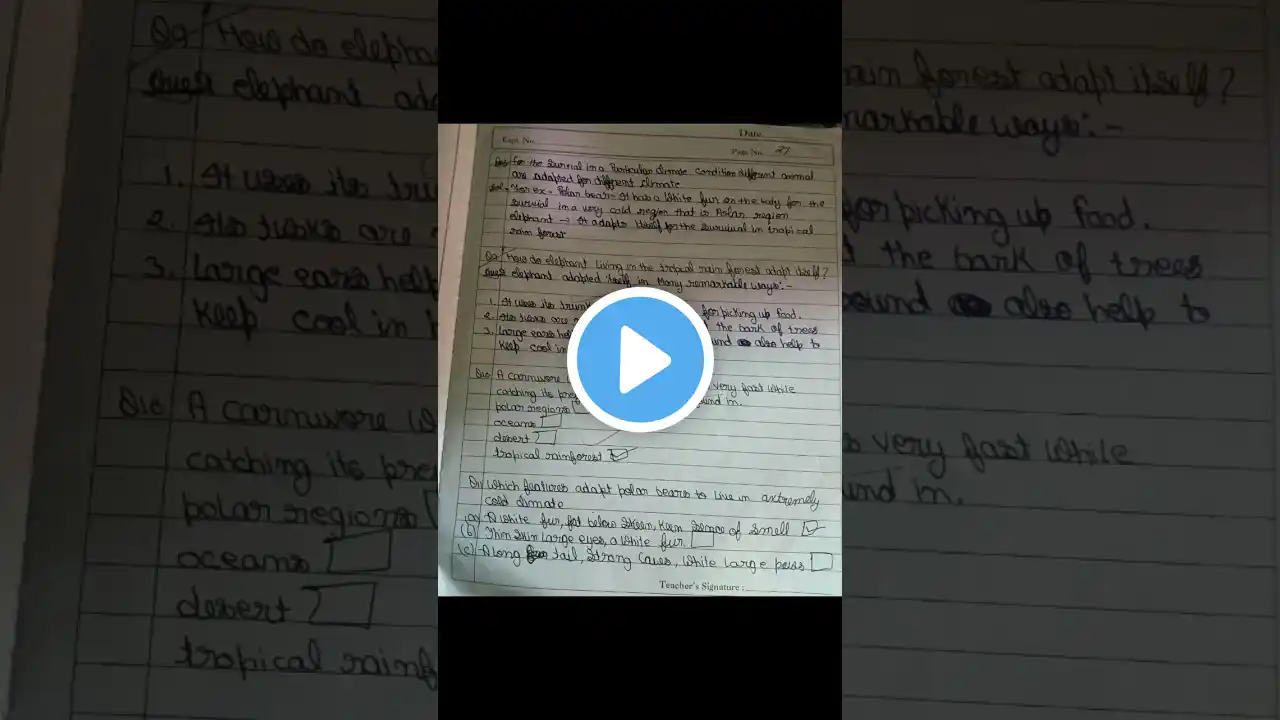 Date
Expt. No.
Page No. 27
for the survival in a Particular climate condition different animal
are adapted for different climate
For ex - Polar bear - It has a White fur on the body for the
survival in a very cold region that is Polar region
elephant → It adapts itself for the survival in tropical
rain forest
Q9 How do elephant Living in the tropical rain forest adapt itself?
elephant adapted itself in Many remarkable ways:-
1. It uses its trunk for picking up food.
2. Its tusks are the bark of trees
3. Large ears help also help to
keep cool in
Q10 A carnivore very fast while
catching its in.
polar regions
oceans
desert
tropical rainforest
Q11 Which features adapt polar bears to live in extremely
cold climate
(a) A white fur, fat below Skeen, Keen Sence of Smell
(b) Thin Skin large eyes, a white fur.
(c) A Long tail, Strong Claws, White large paws
Teacher's Signature :